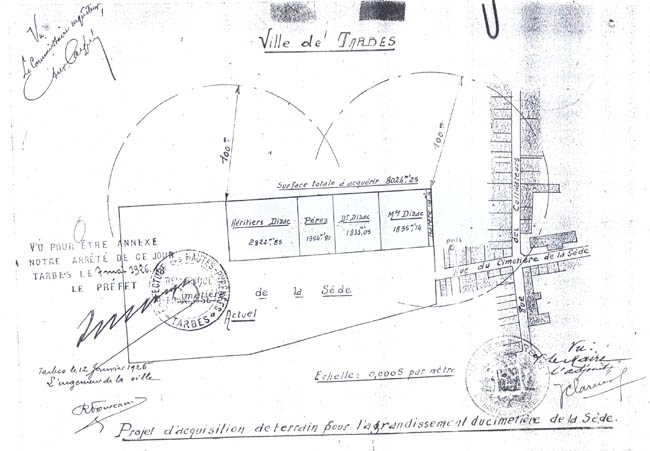 Vu
Le Commissaire enquêteur,
Ville de TARBES
100 m
100 m
Surface totale à acquérir 8024 m² 25
Héritiers Dizac
2922 m² 85
Pérez
D^r Dizac
1833,05
M^me Dizac
puits
Rue du Cimetière de la Sède
Rue
de
Cultivateurs
VU POUR ÊTRE ANNEXE
NOTRE ARRÊTÉ DE CE JOUR
TARBES LE 7 mai 1926.
LE PRÉFET
PRÉFECTURE DES HAUTES-PYRÉNÉES
TARBES
Cimetière de la Sède
Actuel
Tarbes le 12 Janvier 1926
L'ingénieur de la ville
Echelle: 0,0005 par mètre
Vu:
le Maire
l'adjoint
Projet d'acquisition de terrain pour l'agrandissement du cimetière de la Sède.